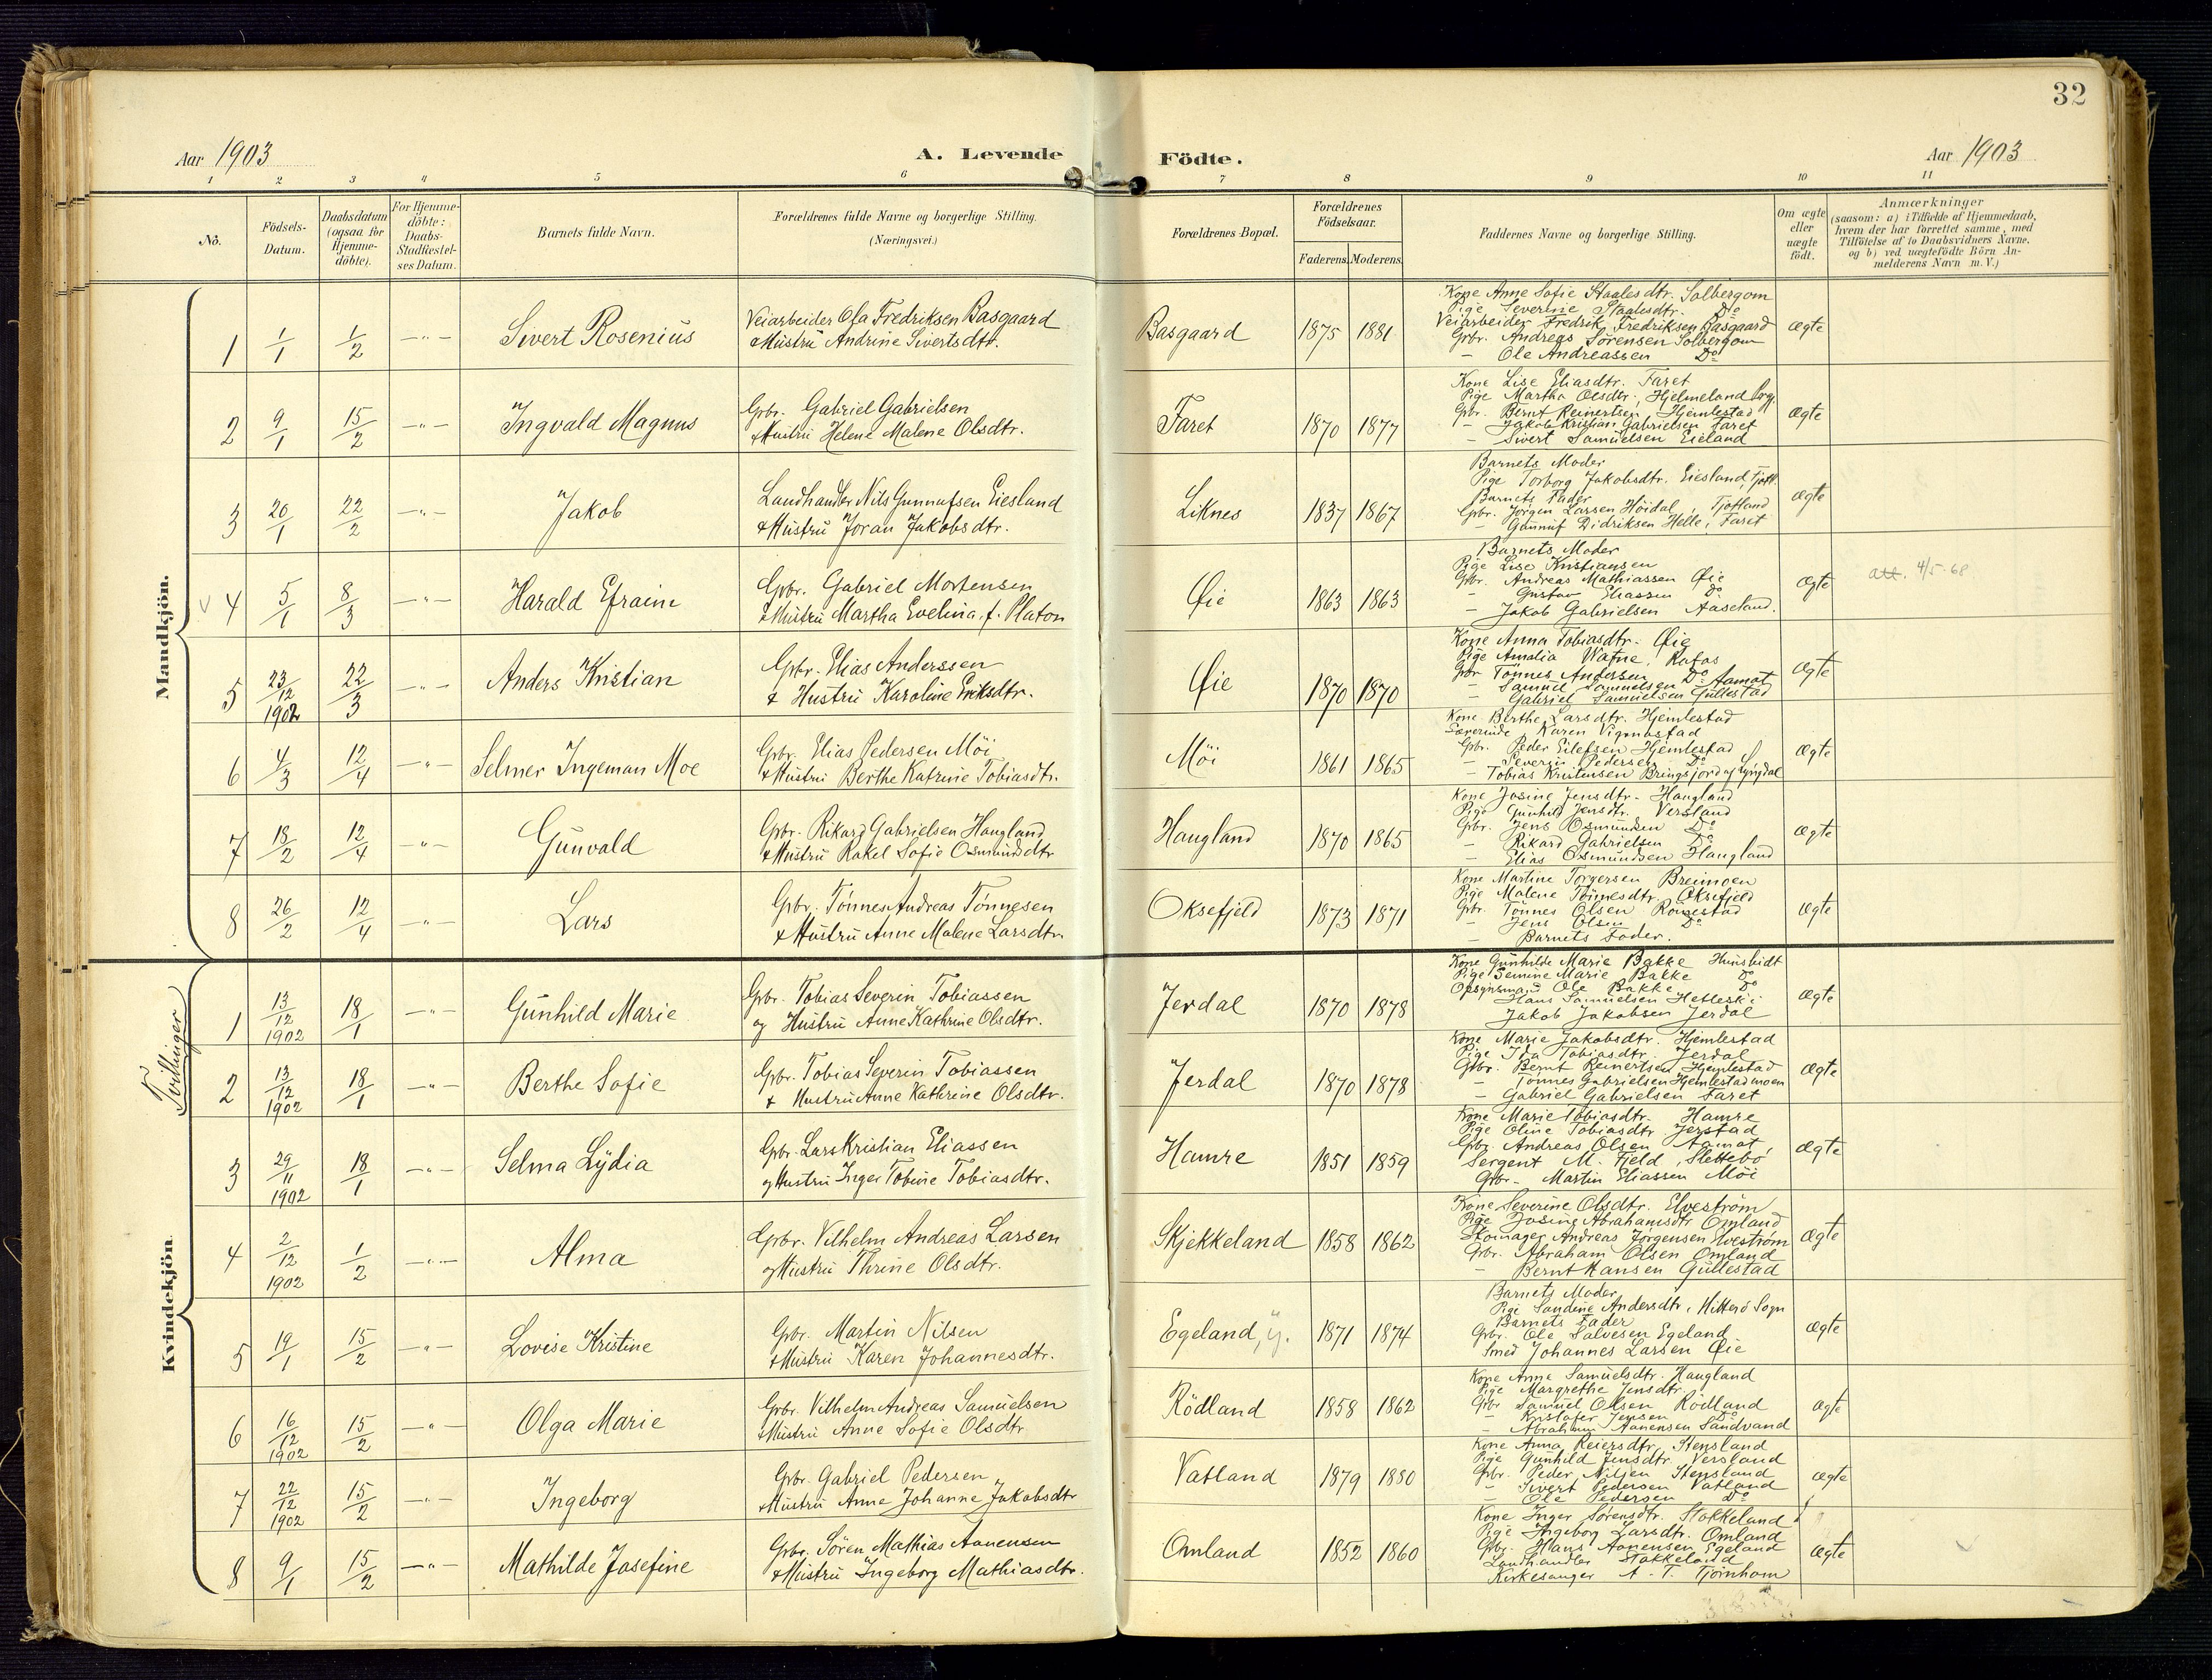 32
Aar 1903 A. Levende Födte. Aar 1903
1 2 3 4 5 6 7 8 9 10 11
No.
Födsels-Datum.
Daabsdatum (ogsaa for Hjemme-döbte).
For Hjemme-döbte: Daabs-Stadfæstel-ses Datum.
Barnets fulde Navn.
Forældrenes fulde Navne og borgerlige Stilling. (Næringsvei.)
Forældrenes Bopæl.
Forældrenes Födselsaar.
Faderens. Moderens.
Faddernes Navne og borgerlige Stilling.
Om ægte eller uægte födt.
Anmærkninger
(saasom: a) i Tilfælde af Hjemmedaab, hvem der har forrettet samme, med Tilföielse af to Daabsvidners Navne, og b) ved uægtefödte Börn An-melderens Navn m. V.)
Mandkjön.
1 1/1 1/2 —"— Sivert Rosenius
Veiarbeider Ola Fredriksen Basgaard
& Hustru Andrine Sivertsdtr.
Basgaard 1875 1881
Kone Anne Sofie Staalesdtr. Solbergom
Pige Severine Staalesdtr. Do
Veiarbeider Fredrik Fredriksen Basgaard
Grbr. Andreas Sörensen Solbergom
— Ole Andreassen Do
Ægte
2 9/1 15/2 —"— Ingvald Magnus
Grbr. Gabriel Gabrielsen
& Hustru Helene Malene Olsdtr.
Faret 1870 1877
Kone Lise Eliasdtr. Faret
Pige Martha Olsdtr., Hjelmeland
Grbr. Bernt Reinertsen Hjemlestad
— Jakob Kristian Gabrielsen Faret
— Sivert Samuelsen Eieland
Ægte
3 20/1 22/2 —"— Jakob
Landhandler Nils Gunnufsen Eiesland
& Hustru Joran Jakobsdtr.
Liknes 1837 1867
Barnets Moder
Pige Torborg Jakobsdtr. Eiesland, Tjotl.
Barnets Fader
Grbr. Jörgen Larsen Höidal, Tjotland
— Gunnuf Didriksen Helle, Faret
Ægte
V 4 5/1 8/3 —"— Harald Efraim
Grbr. Gabriel Mortensen
& Hustru Martha Evelina, f. Platon
Øie 1863 1863
Barnets Moder
Pige Lise Kristiansen
Grbr. Andreas Mathiassen Øie
— Gustav Eliassen Do
— Jakob Gabrielsen Aaseland.
Ægte
att. 4/5-68
5 23/12 1902 22/3 —"— Anders Kristian
Grbr. Elias Anderssen
& Hustru Karoline Eriksdtr.
Øie 1870 1870
Kone Anna Tobiasdtr. Øie
Pige Amalia Watne, Rafos
Grbr Tönnes Andersen Do
— Samuel Samuelsen Aamot
— Gabriel Samuelsen Gullestad
Ægte
6 4/3 12/4 —"— Selmer Ingeman Moe
Grbr. Elias Pedersen Möi
& Hustru Berthe Katrine Tobiasdtr.
Möi 1861 1865
Kone Berthe Larsdtr. Hjemlestad
Lærerinde Karen Vigmostad
Grbr. Peder Eilefsen Hjemlestad
— Severin Pedersen Do
— Tobias Kristensen Bringsjord af Lyngdal
Ægte
7 18/2 12/4 —"— Gunvald
Grbr. Rikard Gabrielsen Haugland
& Hustru Rakel Sofie Osmundsdtr
Haugland 1870 1865
Kone Josine Jensdtr. Haugland
Pige Gunhild Jensdtr. Versland
Grbr. Jens Osmundsen Do
— Rikard Gabrielsen Do
— Elias Osmundsen Haugland
Ægte
8 26/2 12/4 —"— Lars
Grbr. Tönnes Andreas Tönnesen
& Hustru Anne Malene Larsdtr.
Oksefjeld 1873 1871
Kone Martine Torgersen Breimoen
Pige Malene Tönnesdtr. Oksefjeld
Grbr. Tönnes Olsen Römestad
— Jens Olsen Do
— Barnets Fader.
Ægte
Kvindekjön.
Tvillinger
1 13/12 1902 18/1 —"— Gunhild Marie
Grbr. Tobias Severin Tobiassen
og Hustru Anne Kathrine Olsdtr.
Jerdal 1870 1878
Kone Gunhilde Marie Bakke
Pige Semine Marie Bakke Do
Opsynsmand Ole Bakke Do
Hans Samuelsen
Jakob Jakobsen Jerdal
Ægte
2 13/12 1902 18/1 —"— Berthe Sofie
Grbr. Tobias Severin Tobiassen
& Hustru Anne Kathrine Olsdtr.
Jerdal 1870 1878
Kone Marie Jakobsdtr. Hjemlestad
Pige Ida Tobiasdtr. Jerdal
Grbr. Bernt Reinertsen Hjemlestad
— Tönnes Gabrielsen Hjemlestadmoen
— Gabriel Gabrielsen Faret
Ægte
3 29/11 1902 18/1 —"— Selma Lydia
Grbr. Lars Kristian Eliassen
og Hustru Inger Tobine Tobiasdtr.
Hamre 1851 1859
Kone Marie Tobiasdtr. Hamre
Pige Oline Tobiasdtr Jerstad
Grbr. Andreas Olsen Aamot,
Sergent M. Fjeld, Slettebö
Grbr. Martin Eliassen Möi
Ægte
4 2/12 1902 1/2 —"— Alma
Grbr. Vilhelm Andreas Larsen
og Hustru Thrine Olsdtr.
Skjekkeland 1858 1862
Kone Severine Olsdtr. Elveström
Pige Josine Abrahamsdtr Omland
Skomager Andreas Jörgensen Elveström
Grbr. Abraham Olsen Omland
— Bernt Hansen Gullestad
Ægte
5 19/1 15/2 —"— Lovise Kristine
Grbr. Martin Nilsen
& Hustru Karen Johannesdtr.
Egeland, y. 1871 1874
Barnets Moder
Pige Sandine Andersdtr. Hitterö Sogn
Barnets Fader
Grbr. Ole Salvesen Egeland
Smed Johannes Larsen Øie
Ægte
6 16/12 1902 15/2 —"— Olga Marie
Grbr. Vilhelm Andreas Samuelsen
& Hustru Anne Sofie Olsdtr
Rödland 1858 1862
Kone Anne Samuelsdtr. Haugland
Pige Margrethe Jensdtr.
Grbr Samuel Olsen Rödland
— Kristofer Jensen Do
— Abraham Aanensen Sandvand
Ægte
7 22/12 1902 15/2 —"— Ingeborg
Grbr. Gabriel Pedersen
& Hustru Anne Johanne Jakobsdtr
Vatland 1879 1880
Kone Anna Reiersdtr. Stensland
Pige Gunhild Jensdtr Versland
Grbr. Peder Nilsen Stensland
— Sivert Pedersen Vatland
— Ole Pedersen Do
Ægte
8 9/1 15/2 —"— Mathilde Josefine
Grbr. Sören Mathias Aanensen
& Hustru Ingeborg Mathiasdtr.
Omland 1852 1860
Kone Inger Sörensdtr. Stokkeland
Pige Ingeborg Larsdtr. Omland
Grbr. Hans Aanensen Egeland
Landhandler Stokkeland
Kirkesanger A. T. Tjörnhom
Ægte